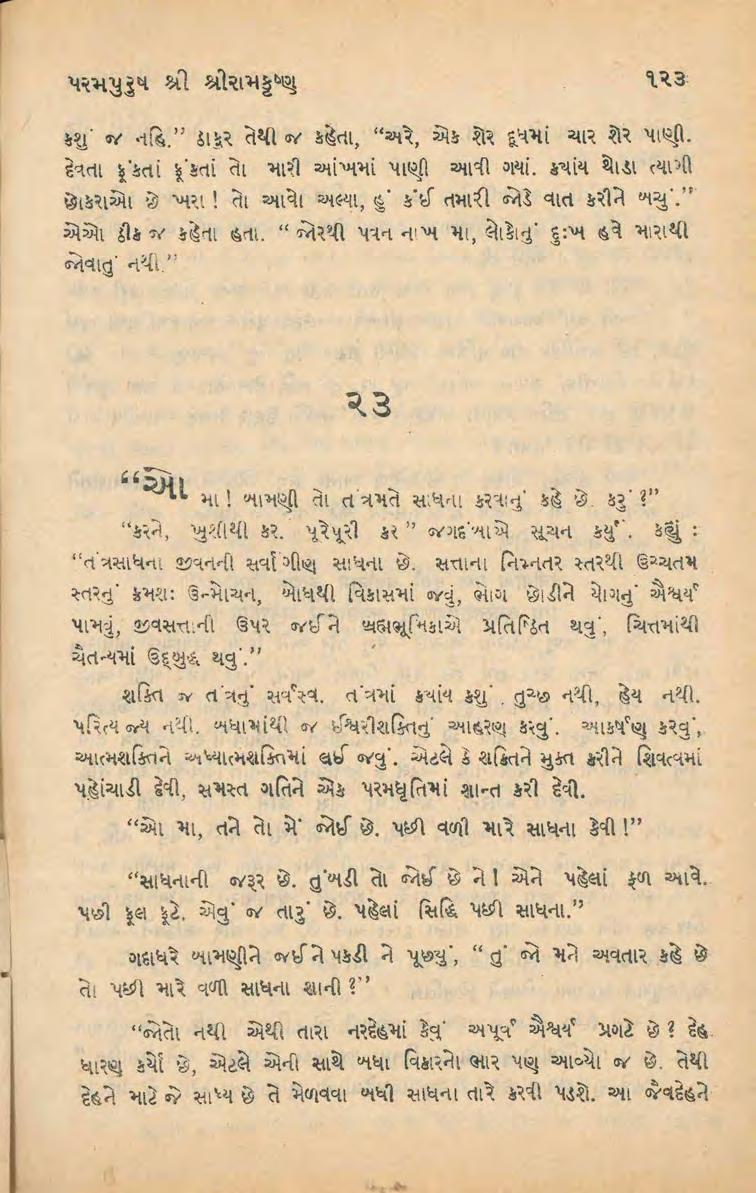 પરમપુરુષ શ્રી શ્રીરામકૃષ્ણ ૧૨૩
કશું જ નહિ.” ઠાકુર તેથી જ કહેતા, “અરે, એક શેર દૂધમાં ચાર શેર પાણી.
દેવતા ફૂંકતાં ફૂંકતાં તો મારી આંખમાં પાણી આવી ગયાં. ક્યાંય થોડા ત્યાગી
છોકરાઓ છે ખરા ! તો આવો અલ્યા, હું કંઈ તમારી જોડે વાત કરીને બચું.”
એઓ ઠીક જ કહેતા હતા. “ જોરથી પવન નાખ મા, લોકોનું દુઃખ હવે મારાથી
જોવાતું નથી.”
૨૩
“ઓ મા ! બામણી તો તંત્રમતે સાધના કરવાનું કહે છે. કરું ?”
“કરને, ખુશીથી કર. પૂરેપૂરી કર ” જગદંબાએ સૂચન કર્યું. કહ્યું :
“તંત્રસાધના જીવનની સર્વાંગીણ સાધના છે. સત્તાના નિમ્નતર સ્તરથી ઉચ્ચતમ
સ્તરનું ક્રમશઃ ઉન્મોચન, બોધથી વિકાસમાં જવું, ભોગ છોડીને યોગનું ઐશ્વર્ય
પામવું, જીવસત્તાની ઉપર જઈને બ્રહ્મભૂમિકાએ પ્રતિષ્ઠિત થવું, ચિત્તમાંથી
ચૈતન્યમાં ઉદ્‌બુદ્ધ થવું.”
શક્તિ જ તંત્રનું સર્વસ્વ. તંત્રમાં ક્યાંય કશું તુચ્છ નથી, હેય નથી.
પરિત્યજ્ય નથી. બધામાંથી જ ઈશ્વરીશક્તિનું આહરણ કરવું. આકર્ષણ કરવું,
આત્મશક્તિને અધ્યાત્મશક્તિમાં લઈ જવું. એટલે કે શક્તિને મુક્ત કરીને શિવત્વમાં
પહોંચાડી દેવી, સમસ્ત ગતિને એક પરમધૃતિમાં શાન્ત કરી દેવી.
“ઓ મા, તને તો મેં જોઈ છે. પછી વળી મારે સાધના કેવી !”
“સાધનાની જરૂર છે. તુંબડી તો જોઈ છે ને ! એને પહેલાં ફળ આવે.
પછી ફૂલ ફૂટે. એવું જ તારું છે. પહેલાં સિદ્ધિ પછી સાધના.”
ગદાધરે બામણીને જઈને પકડી ને પૂછ્યું, “ તું જો મને અવતાર કહે છે
તો પછી મારે વળી સાધના શાની ?”
“જોતો નથી એથી તારા નરદેહમાં કેવું અપૂર્વ ઐશ્વર્ય પ્રગટે છે ? દેહ
ધારણ કર્યો છે, એટલે એની સાથે બધા વિકારનો ભાર પણ આવ્યો જ છે. તેથી
દેહને માટે જે સાધ્ય છે તે મેળવવા બધી સાધના તારે કરવી પડશે. આ જૈવદેહને